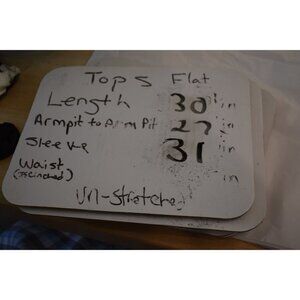 Tops Flat
Length 30 in
Armpit to Arm Pit 27 in
Sleeve 31 in
Waist in
(if cinched)
Un-Stretched